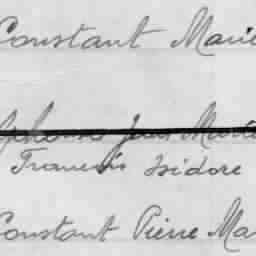 Constant Marie
Jean Marie
Francois Isidore
Constant Pierre Ma